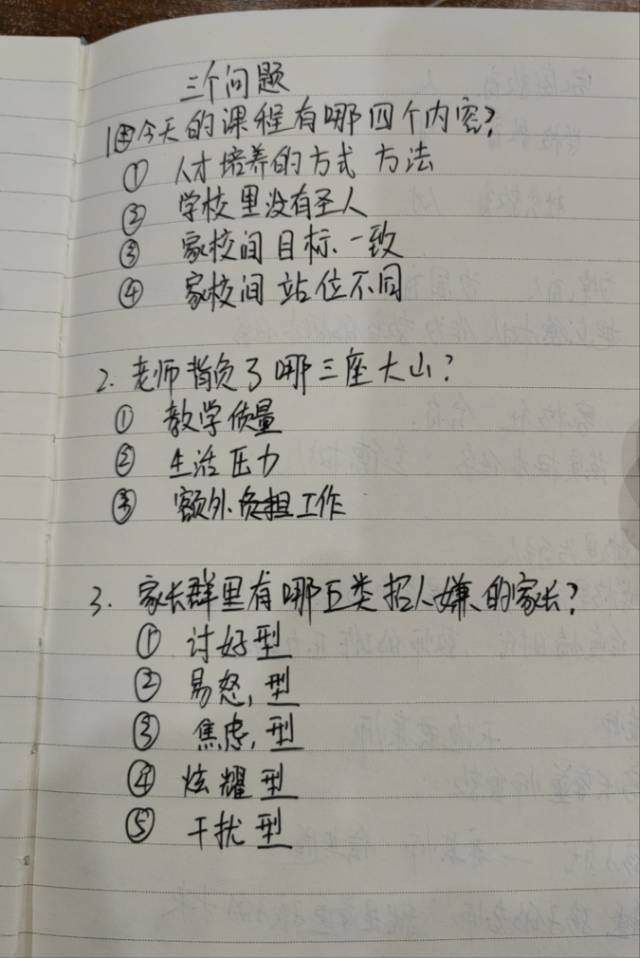 三个问题
1.今天的课程有哪四个内容?
① 人才培养的方式 方法
② 学校里没有圣人
③ 家校间目标一致
④ 家校间 站位不同
2. 老师背负了哪三座大山?
① 教学质量
② 生活压力
③ 额外负担工作
3. 家长群里有哪五类招人嫌的家长?
① 讨好型
② 易怒型
③ 焦虑型
④ 炫耀型
⑤ 干扰型